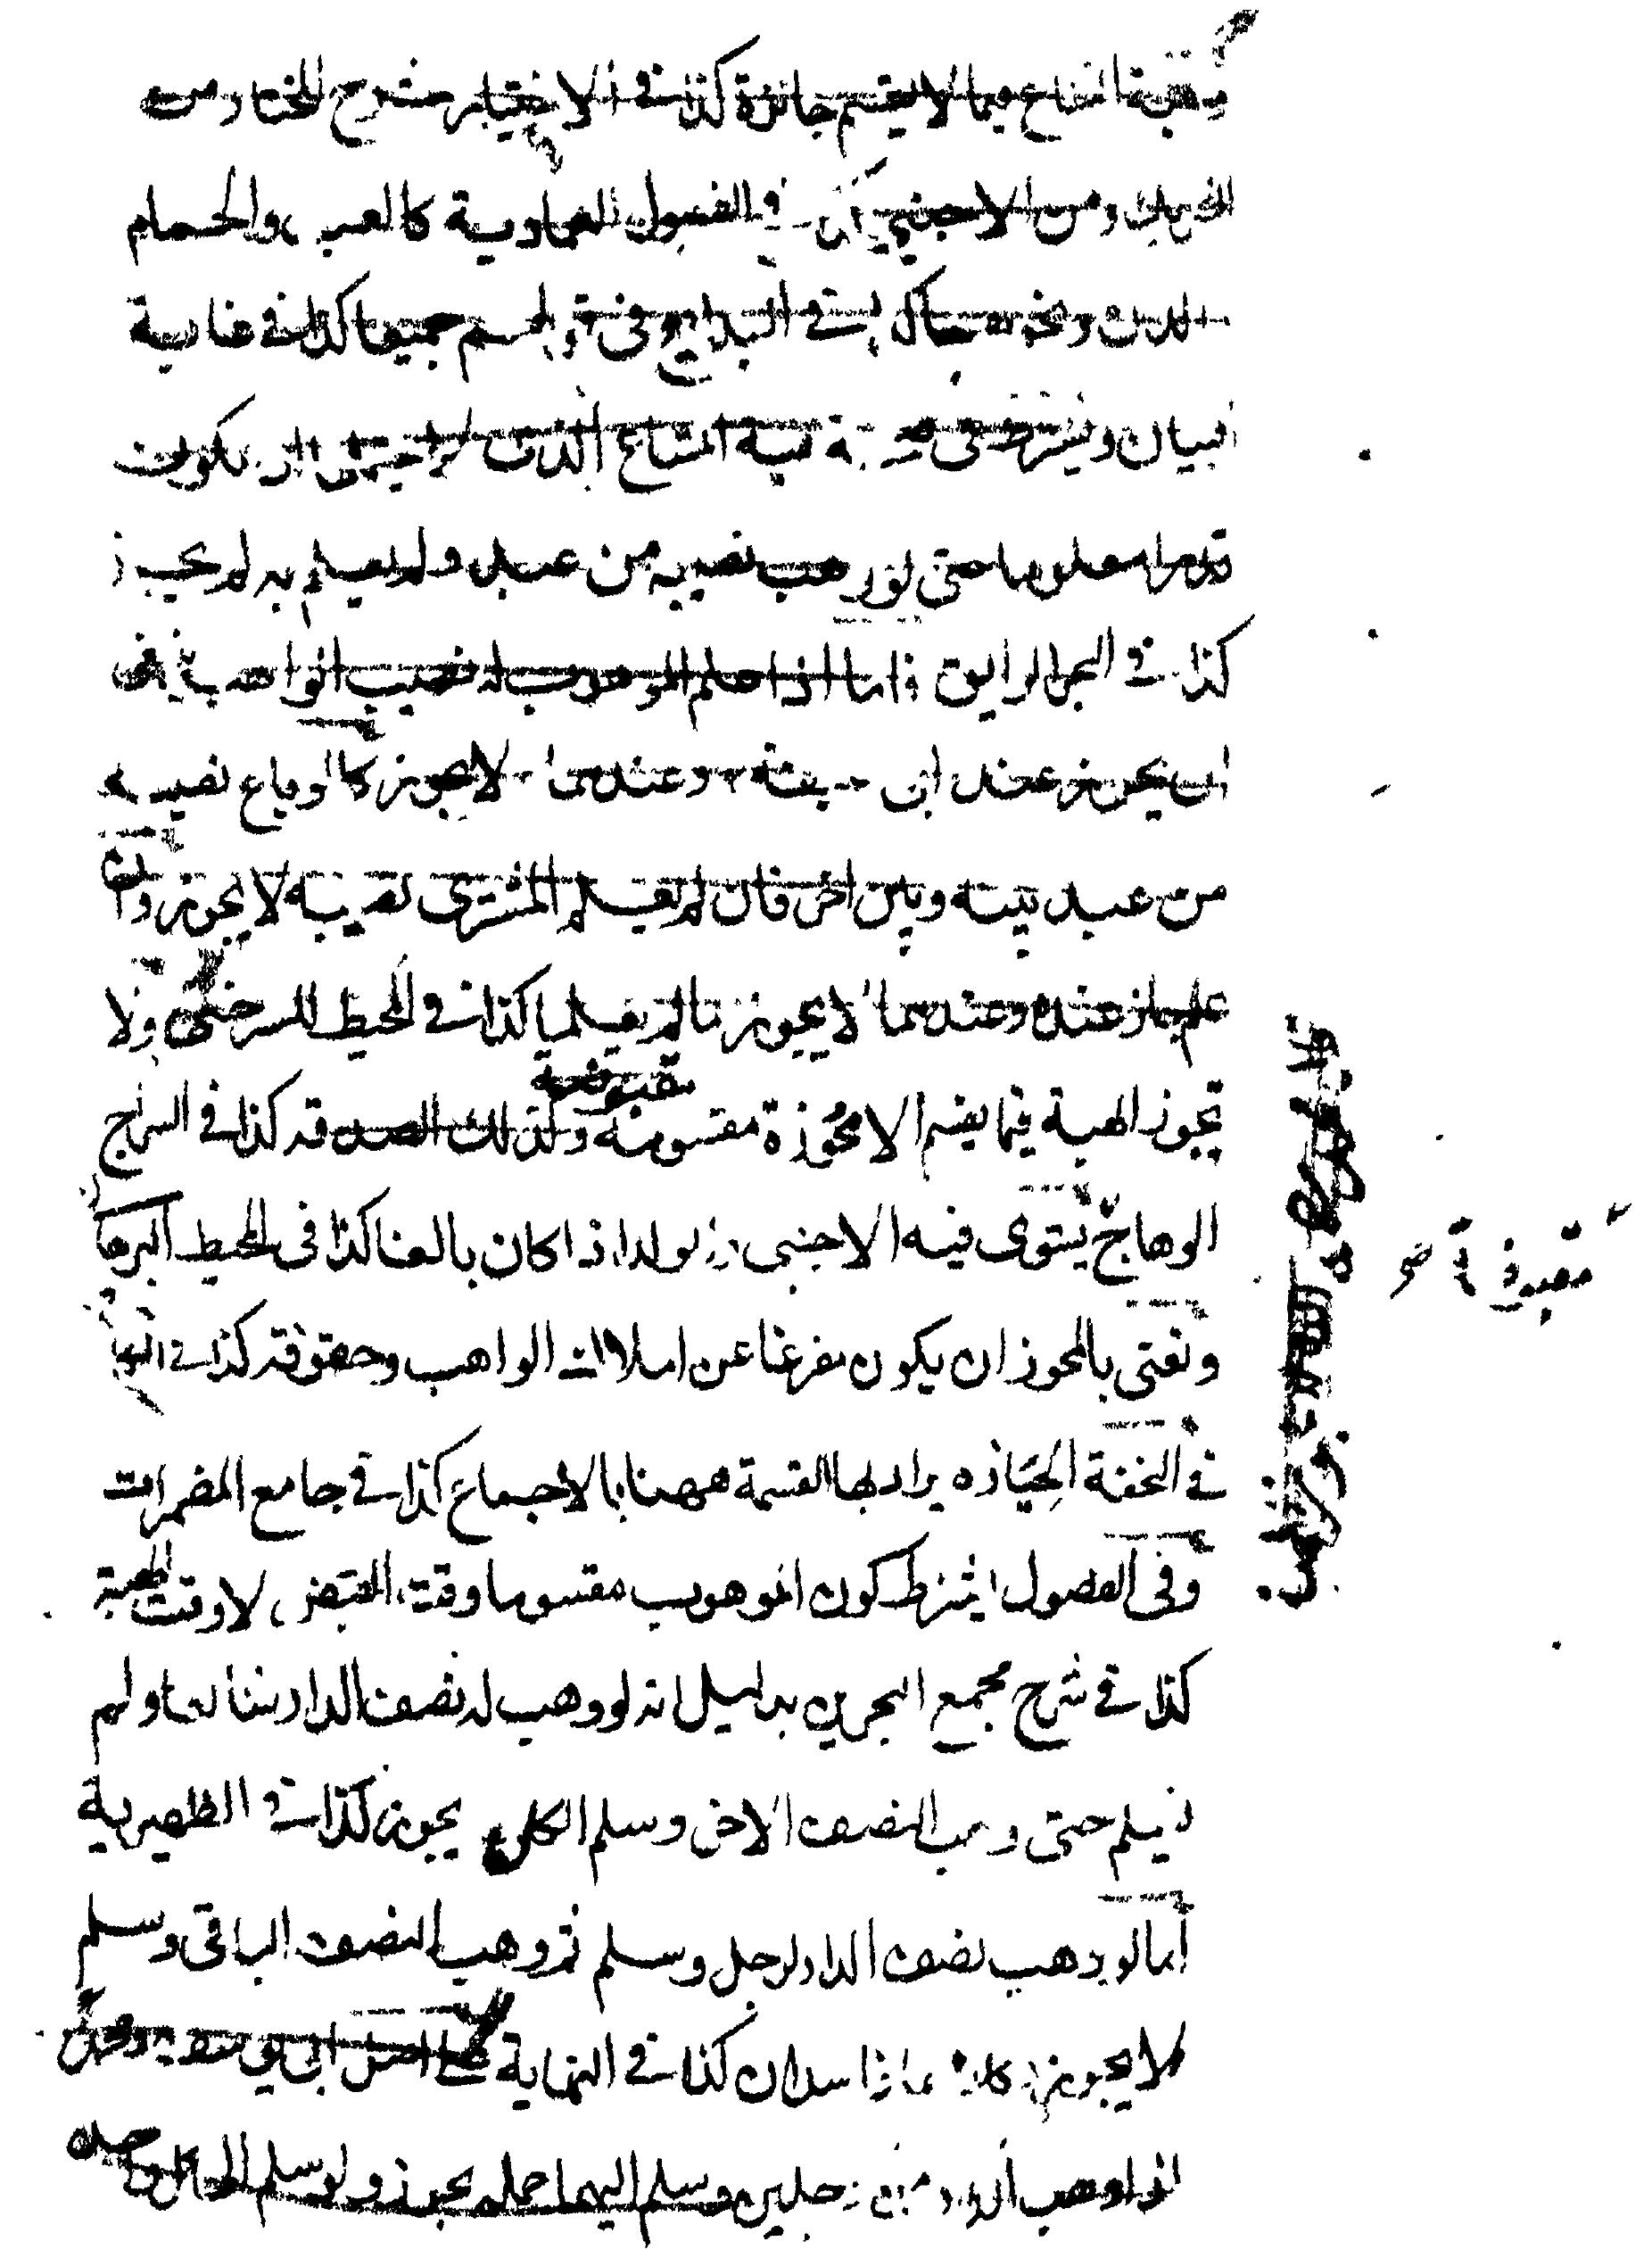 وهبة المشاع فيما لا يقسم جائزة كذا في الاختيار شرح المختار ومن
الشريك ومن الاجنبي في الفصول العمادية كالعبد والحمام
في البدايع وفي جميعا كذا في غاية
البيان ويشترط في صحة هبة المشاع الذي لا يحتمل ان يكون
قدرا معلوما حتى لو وهب نصيبه من عبد ولم يعلم به لم يجز
كذا في البحر الرايق واما اذا علم الموهوب له نصيب الواهب ينبغي
ان يجوز عند ابي حنيفة وعندهما لا يجوز كما لو باع نصيبه
من عبد بينه وبين اخر فان لم يعلم المشتري نصيبه لا يجوز وان
علم جاز عنده وعندهما لا يجوز ما لم يعلما كذا في المحيط للسرخسي ولا
تجوز الهبة فيما يقسم الا محوزة مقسومة مقبوضة وكذلك الصدقة كذا في السراج
الوهاج يستوى فيه الاجنبى والولد اذا كان بالغا كذا فى المحيط البرهانى
ونعنى بالمحوز ان يكون مفرغا عن املاك الواهب وحقوقه كذا في النهاية
في التحفة الحيازه يراد بها القسمة ههنا بالاجماع كذا في جامع المضمرات
وفى الفصول يشترط كون الموهوب مقسوما وقت القبض لا وقت الهبة
كذا في شرح مجمع البحرين بدليل انه لو وهب له نصف الدار شائعا ولم
يسلم حتى وهب النصف الاخر وسلم الكل يجوز كذا في الظهيرية
اما لو وهب نصف الدار لرجل وسلم ثم وهب النصف الباقى وسلم
لا يجوز كذا في النهاية اصل ابي يوسف ومحمد
اذا وهب الدار من رجلين وسلم اليهما جملة يجوز ولو سلم الى كل واحد
مقبوضة صح